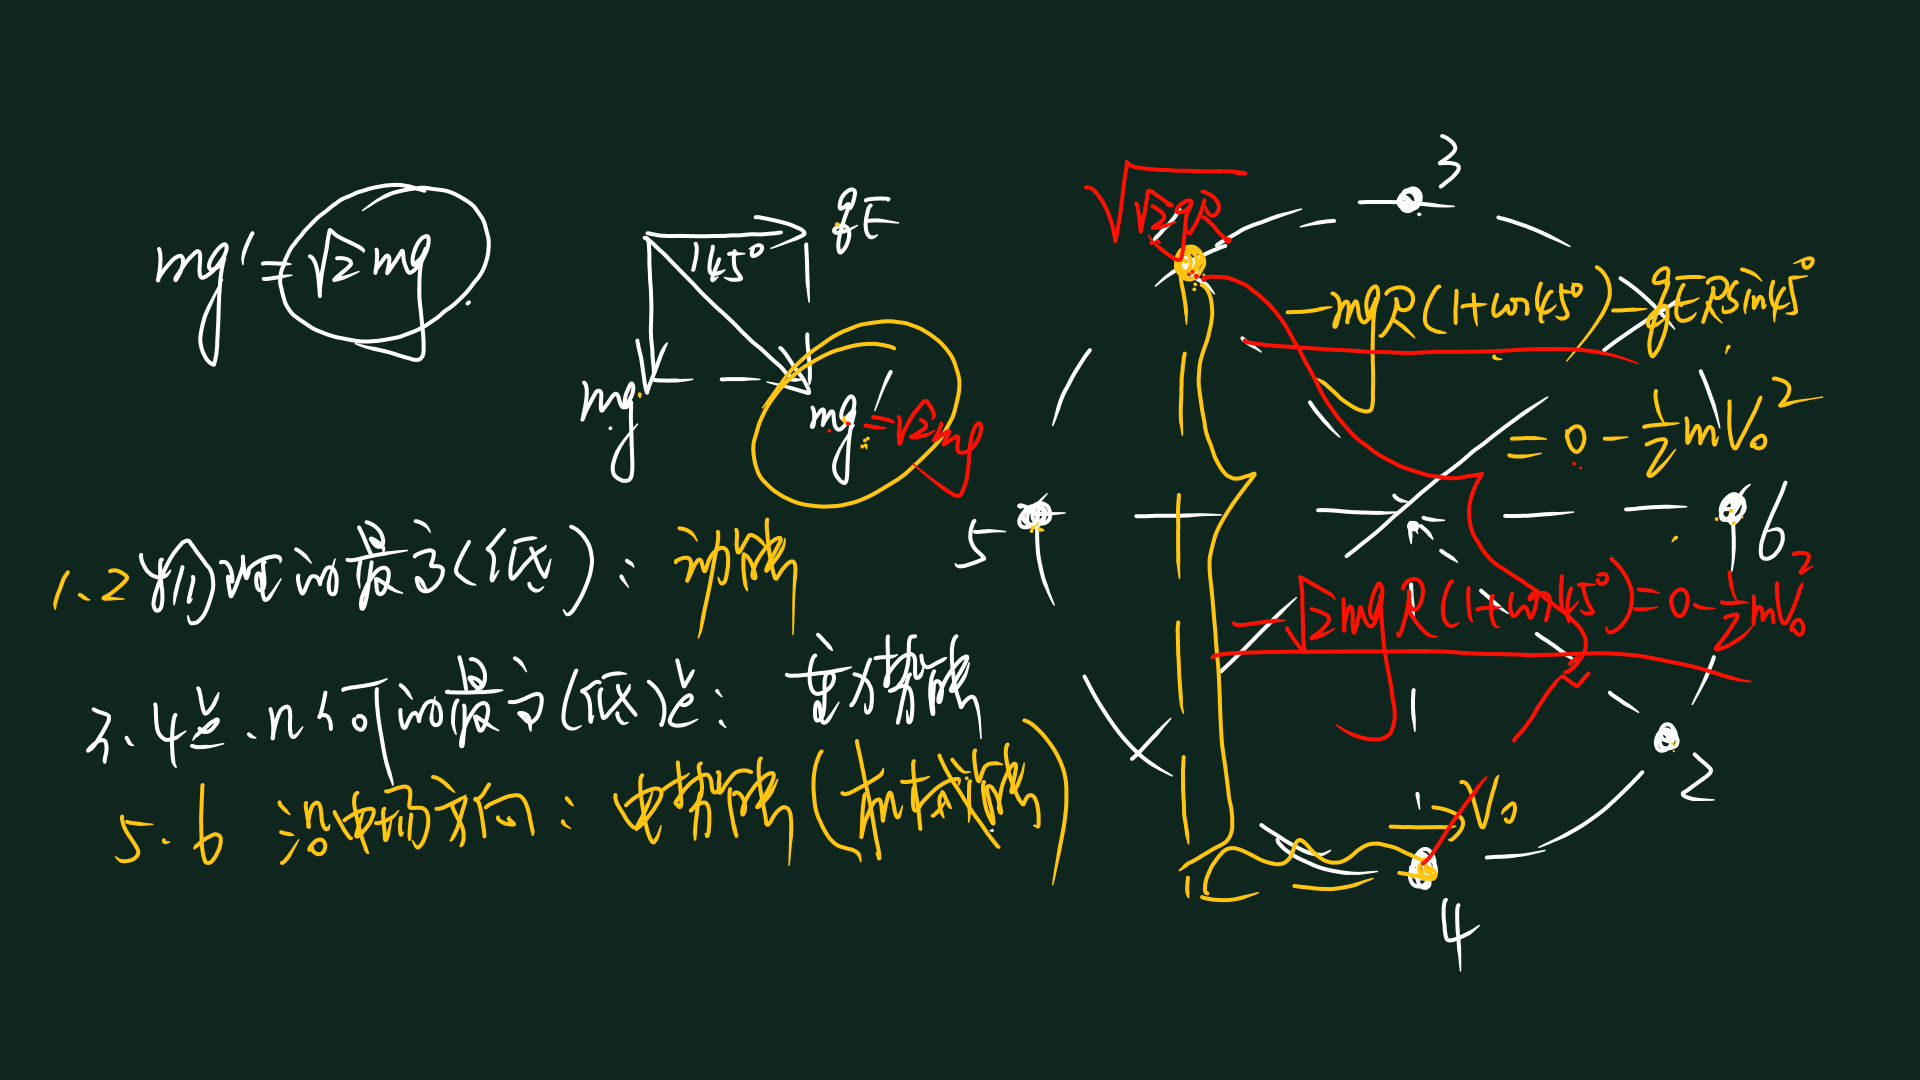 mg' = √2 mg
qE
45°
mg
mg' = √2 mg
1.2 物理的最高(低): 动能
3.4 几何的最高(低): 重力势能
5.6 沿电场方向: 电势能(机械能)
3
√(√2gR)
-mgR(1+cos45°)-qERsin45°
= 0 - ½mV₀²
5
6
-√2mgR(1+cos45°)=0-½mV₀²
2
V₀
4